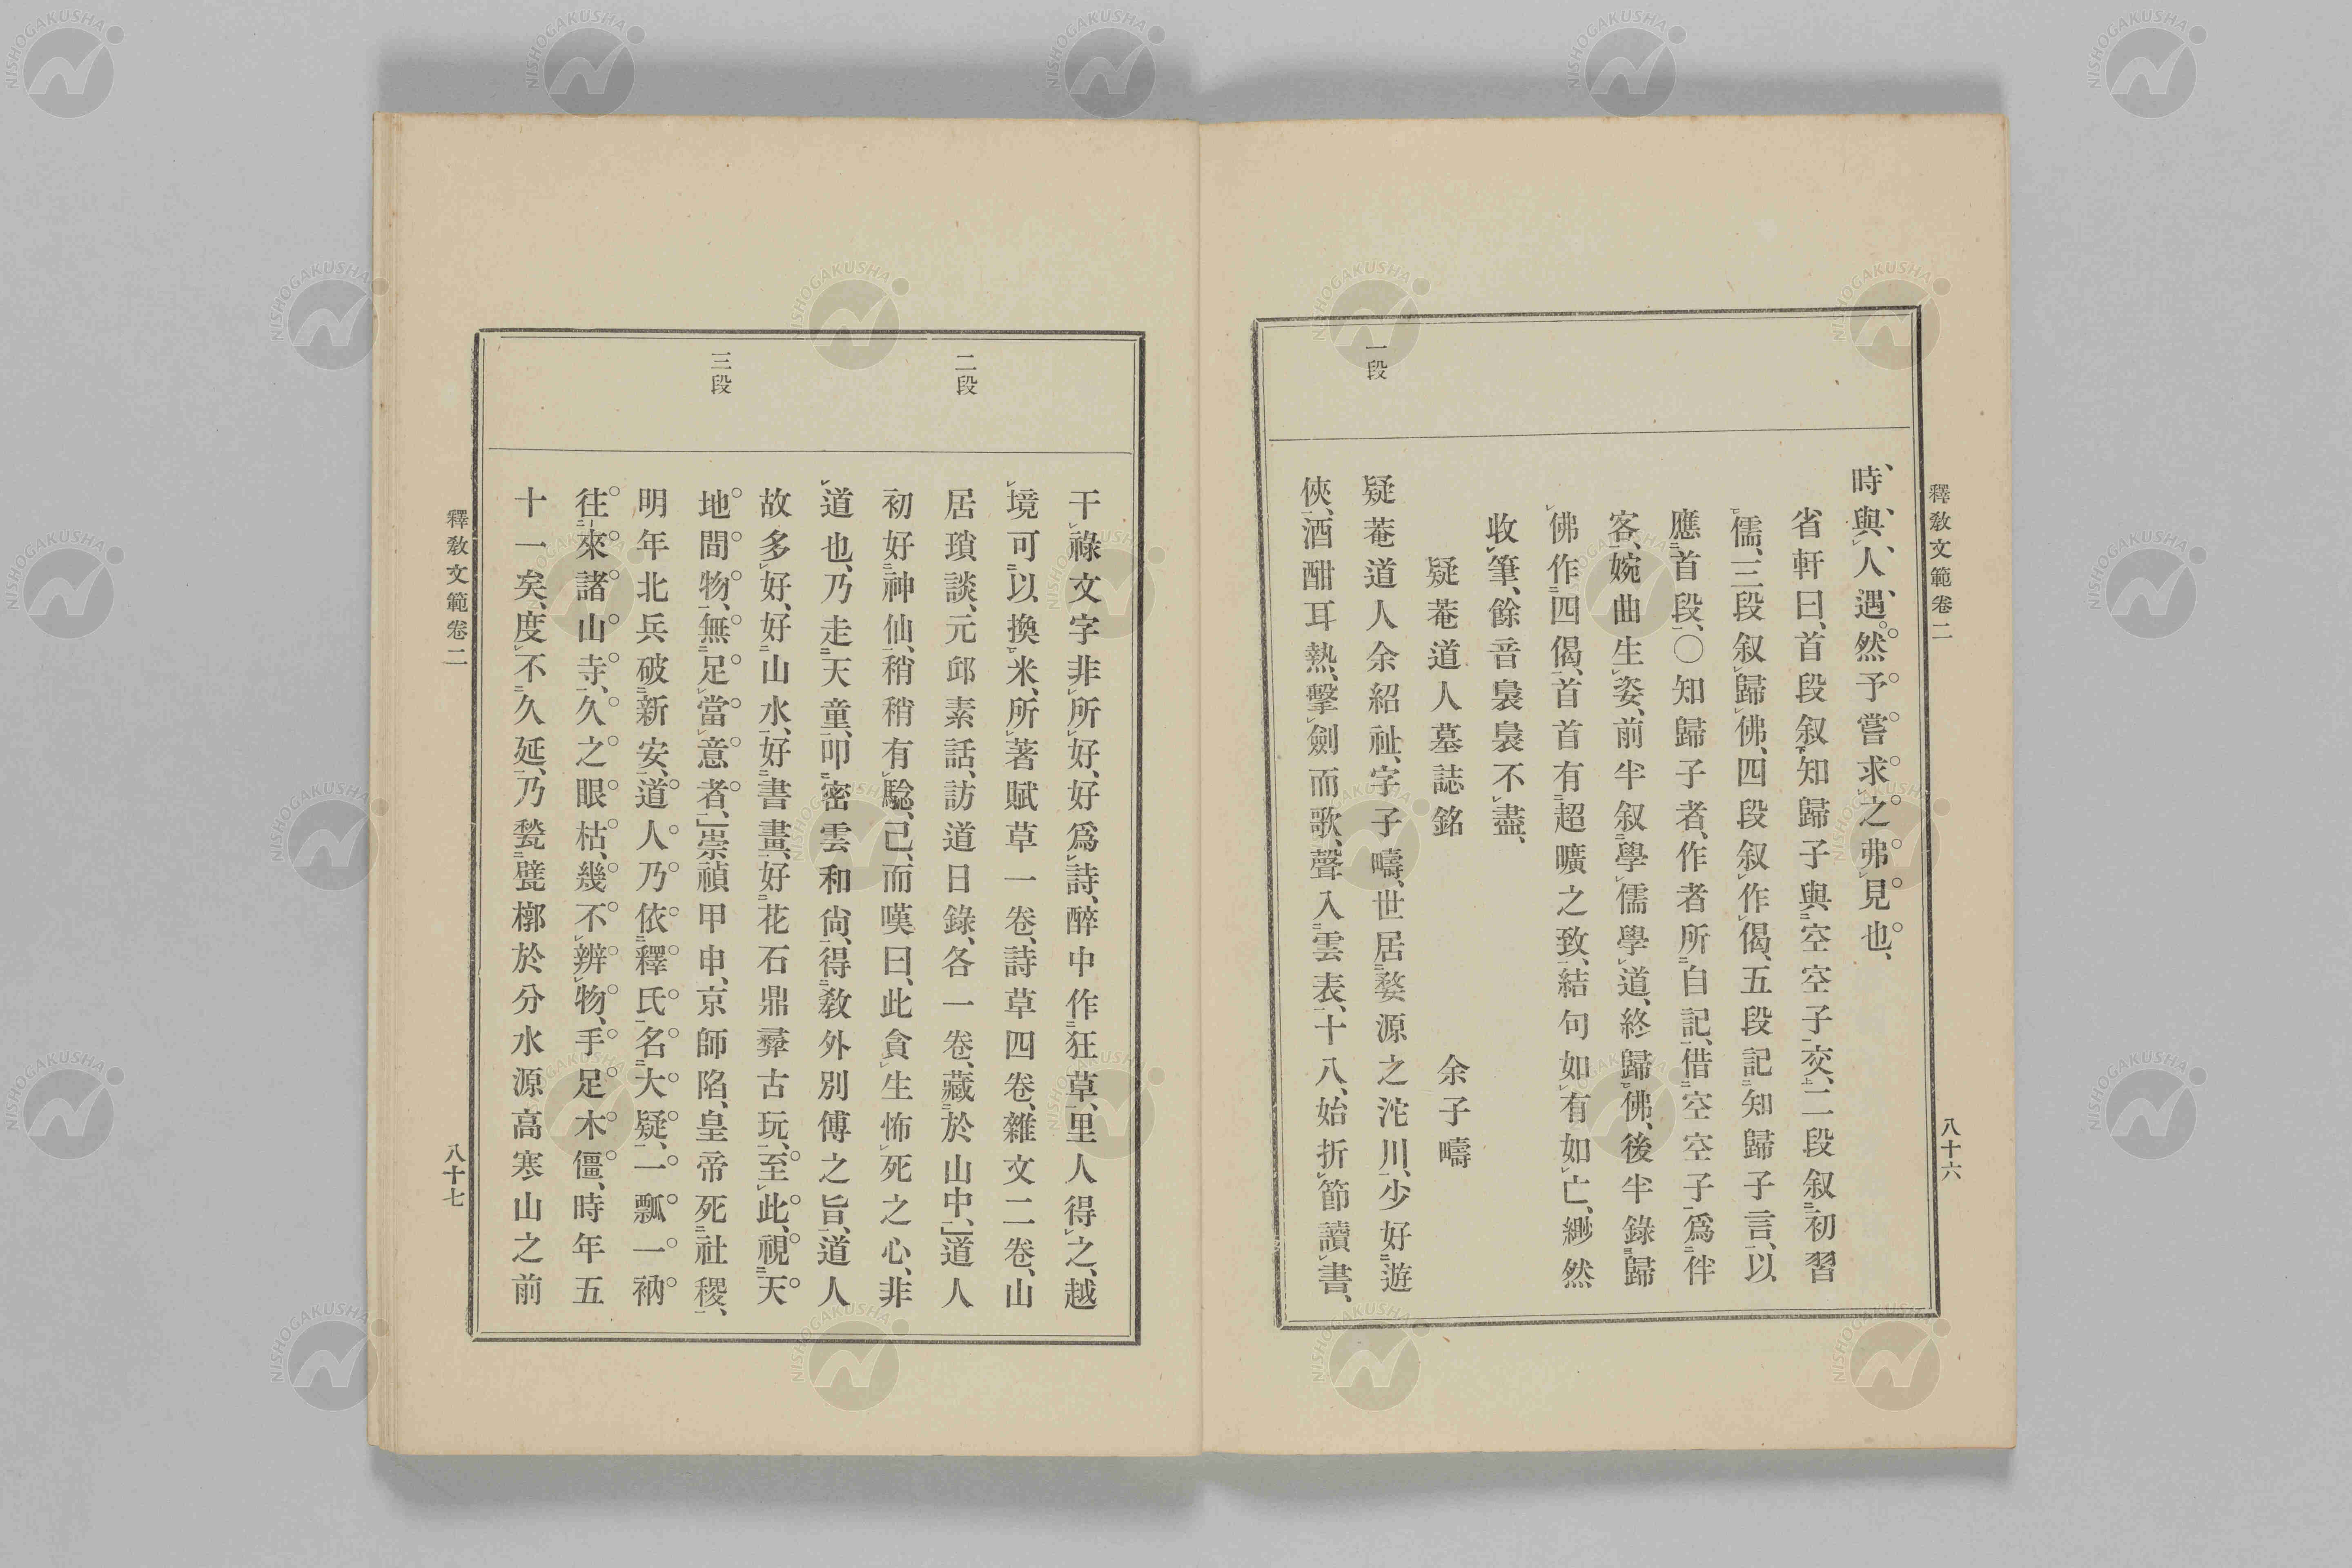 釋敎文範卷二
八十六
時、與人、遇。然予嘗求之弗見也、
省軒曰、首段叙知歸子與空空子交、二段叙初習
儒、三段叙歸佛、四段叙作偈、五段記知歸子言、以
應首段、〇知歸子者、作者所自記、借空空子爲伴
客、婉曲生姿、前半叙學儒學道、終歸佛、後半錄歸
佛作四偈、首首有超曠之致、結句如有如亡、緲然
收筆、餘音裊裊不盡、
疑菴道人墓誌銘 余子疇
一段
疑菴道人余紹祉、字子疇、世居婺源之沱川、少好遊
俠、酒酣耳熱、擊劍而歌、聲入雲表、十八、始折節讀書、
干祿文字非所好、好爲詩、醉中作狂草、里人得之、越
境可以換米、所著賦草一卷、詩草四卷、雜文二卷、山
二段
居瑣談、元邱素話、訪道日錄、各一卷、藏於山中、」道人
初好神仙、稍稍有驗、已而嘆曰、此貪生怖死之心、非
道也、乃走天童、叩密雲和尙、得敎外別傳之旨、道人
故多好、好山水、好書畫、好花石鼎彛古玩、至此、視天
三段
地間物、無足當意者、」崇禎甲申、京師陷、皇帝死社稷、
明年北兵破新安、道人乃依釋氏、名大疑、一瓢一衲
往來諸山寺、久之眼枯、幾不辨物、手足木僵、時年五
十一矣、度不久延、乃甃甓槨於分水源高寒山之前
釋敎文範卷二
八十七
NISHOGAKUSHA